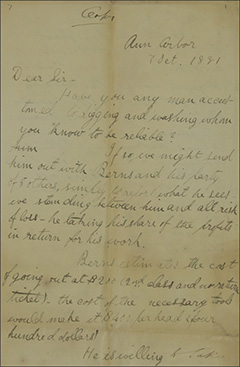 Copy
Ann Arbor
7 Oct. 1891
Dear Sir-
Have you any man accus-
tomed to digging and washing whom
you know to be reliable?
him If so we might send
him out with Berns and his party
of others, simply to report what he sees
we standing between him and all risk
of loss - he taking his share of the profits
in return for his work.
Berns estimates the cost
of going out at $200 (2nd class and no return
ticket). the cost of the necessary tools
would make it $400 per head (four
hundred dollars)
He is willing to